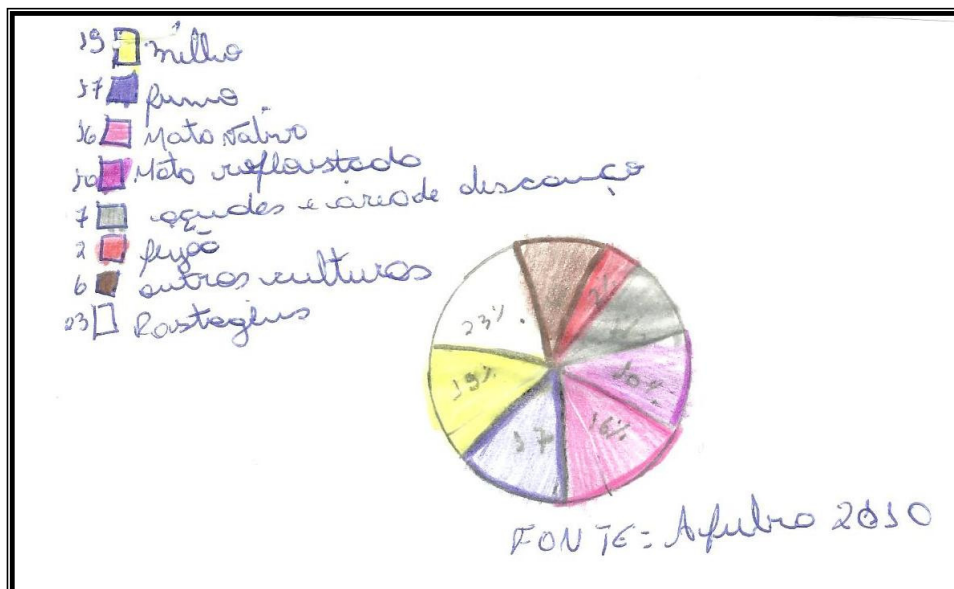 19 milho
17 fumo
16 Mato nativo
10 Mato reflorestado
7 açudes e area de descanço
2 feijão
6 outras culturas
23 Pastagens
23%
2%
10%
19%
17
16%
FONTE = Afubra 2010